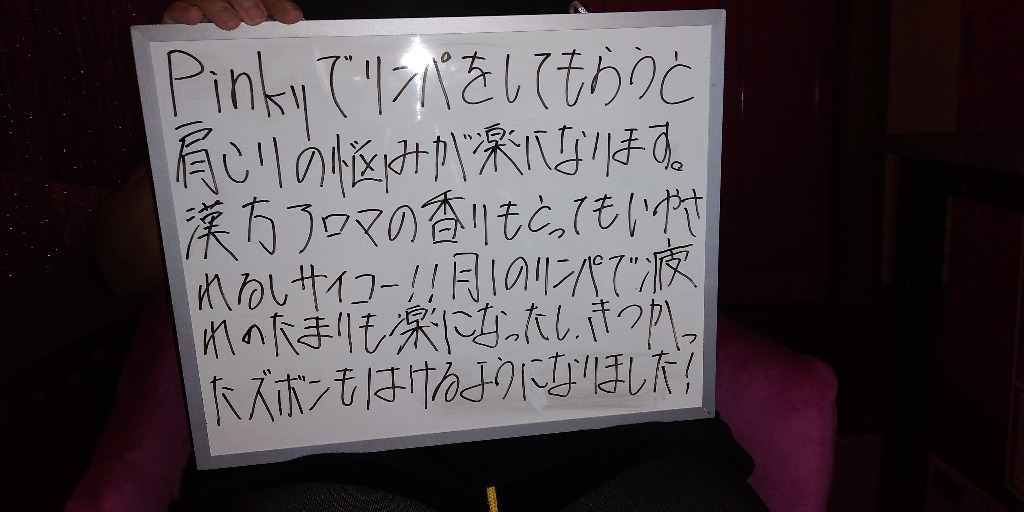 Pinkyでリンパをしてもらうと
肩こりの悩みが楽になります。
漢方アロマの香りもとってもいやさ
れるしサイコー!!月1のリンパで疲
れのたまりも楽になったし、きつかっ
たズボンもはけるようになりました!